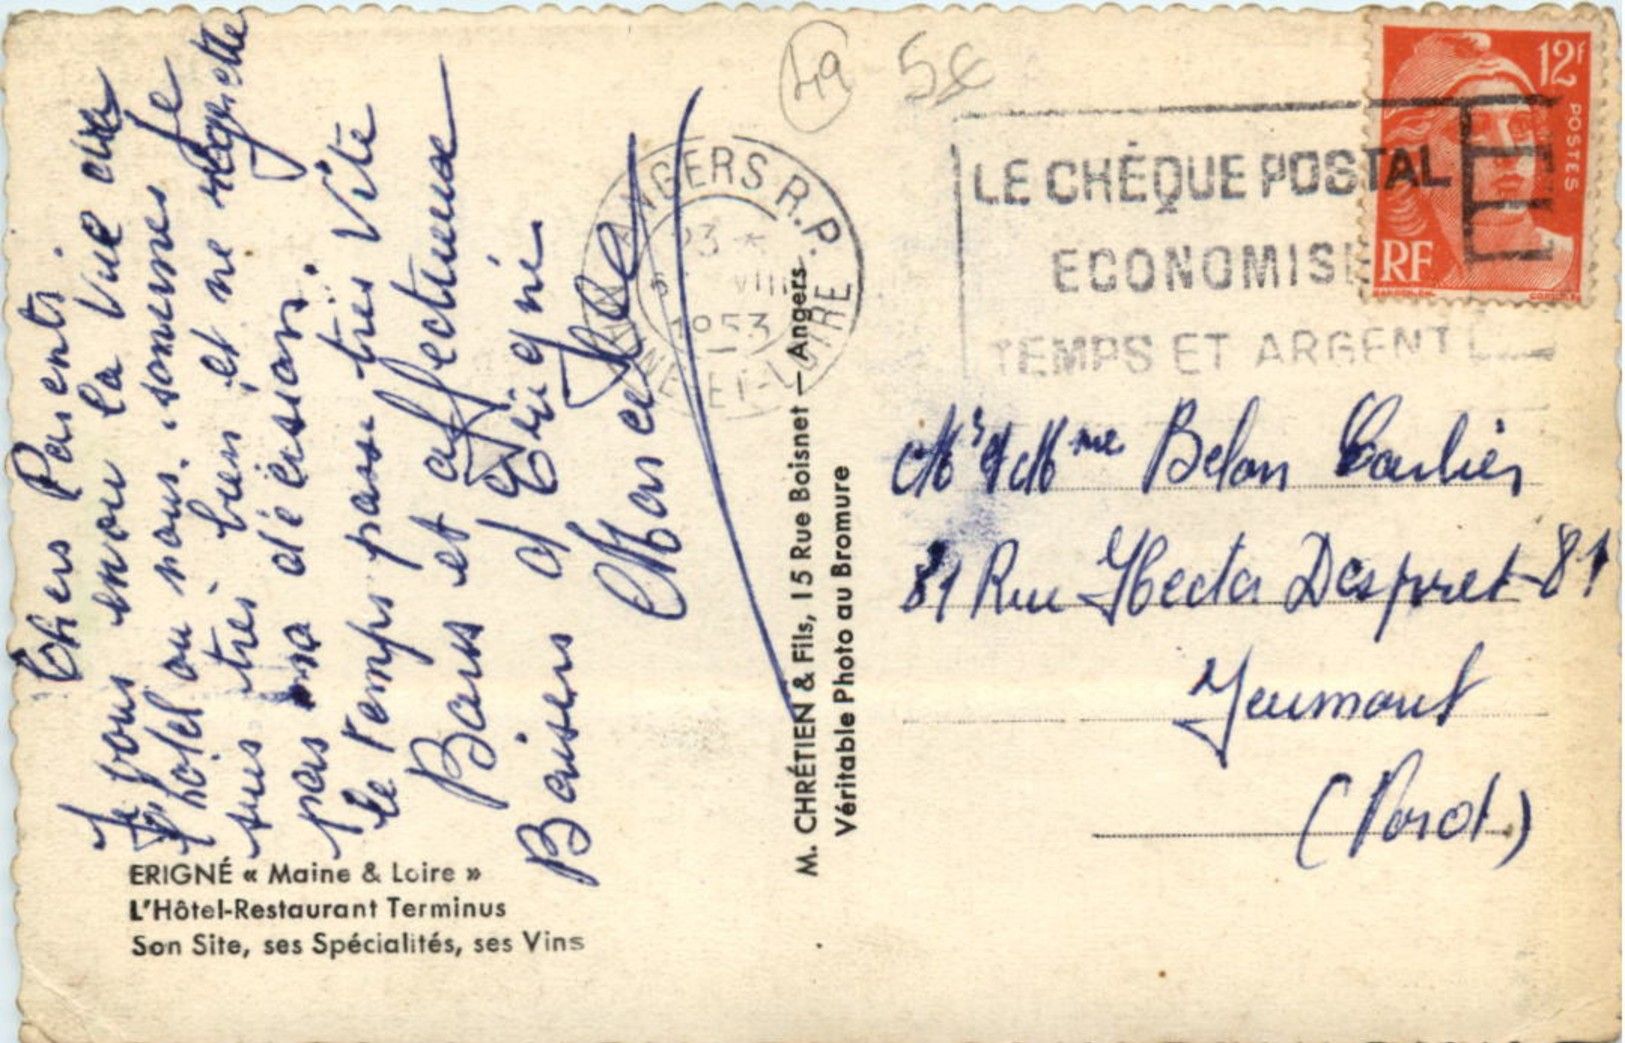 Chers Parents
Je vous envoi la vue de
l'hotel ou nous sommes Je
suis très bien et ne regrette
pas ma décision.
le temps passe très vite
Bons et affectueux
Baisers d'Erigné
Marcelle
ERIGNÉ « Maine & Loire »
L'Hôtel-Restaurant Terminus
Son Site, ses Spécialités, ses Vins
M. CHRÉTIEN & Fils, 15 Rue Boisnet — Angers
Véritable Photo au Bromure
49 5€
ANGERS R.P.
23 *
VIII
1953
MAINE-ET-LOIRE
LE CHÈQUE POSTAL
ECONOMISE
TEMPS ET ARGENT
12f
POSTES
RF
Mr & Mme Belon Carlier
81 Rue Hector Despret 81
Jeumont
(Nord)